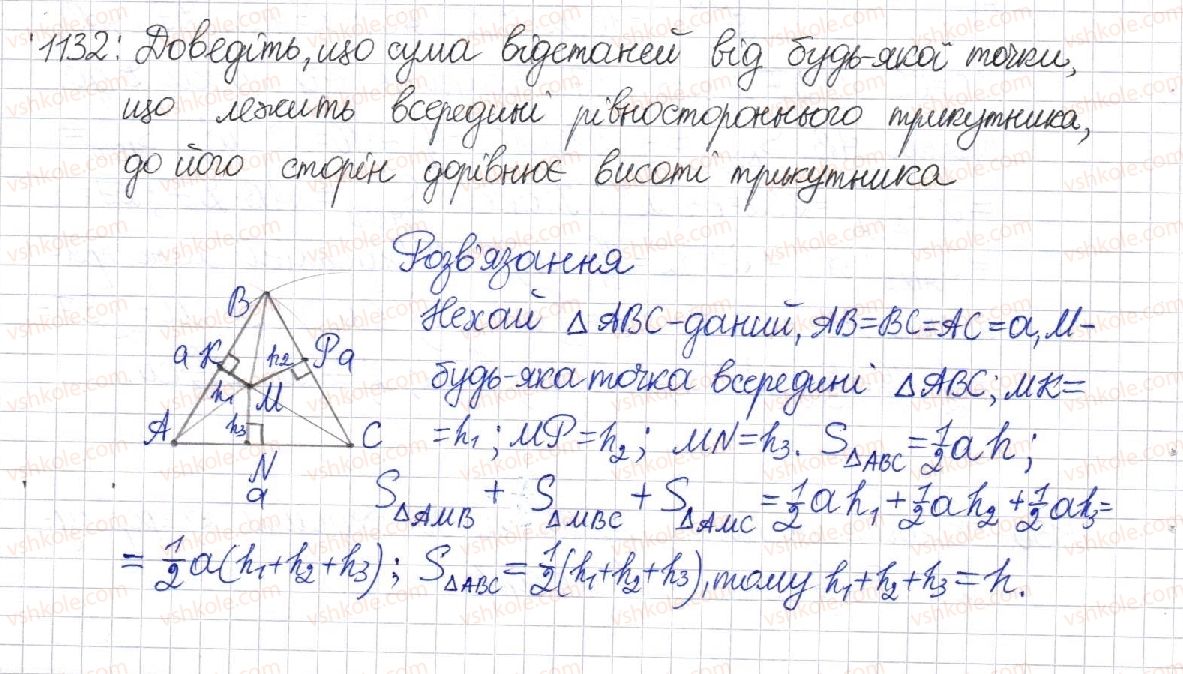 1132: Доведіть, що сума відстаней від будь-якої точки,
що лежить всередині рівностороннього трикутника,
до його сторін дорівнює висоті трикутника
Розв'язання
Нехай △ABC-даний, AB=BC=AC=a, M-
будь-яка точка всередині △ABC; MK=
=h₁; MP=h₂; MN=h₃. S△ABC=½ah;
S△AMB + S△MBC + S△AMC = ½ah₁+½ah₂+½ah₃=
= ½a(h₁+h₂+h₃); S△ABC=½(h₁+h₂+h₃), тому h₁+h₂+h₃=h.
B
a K h₂ P a
h₁ M
A h₃ C
N
a